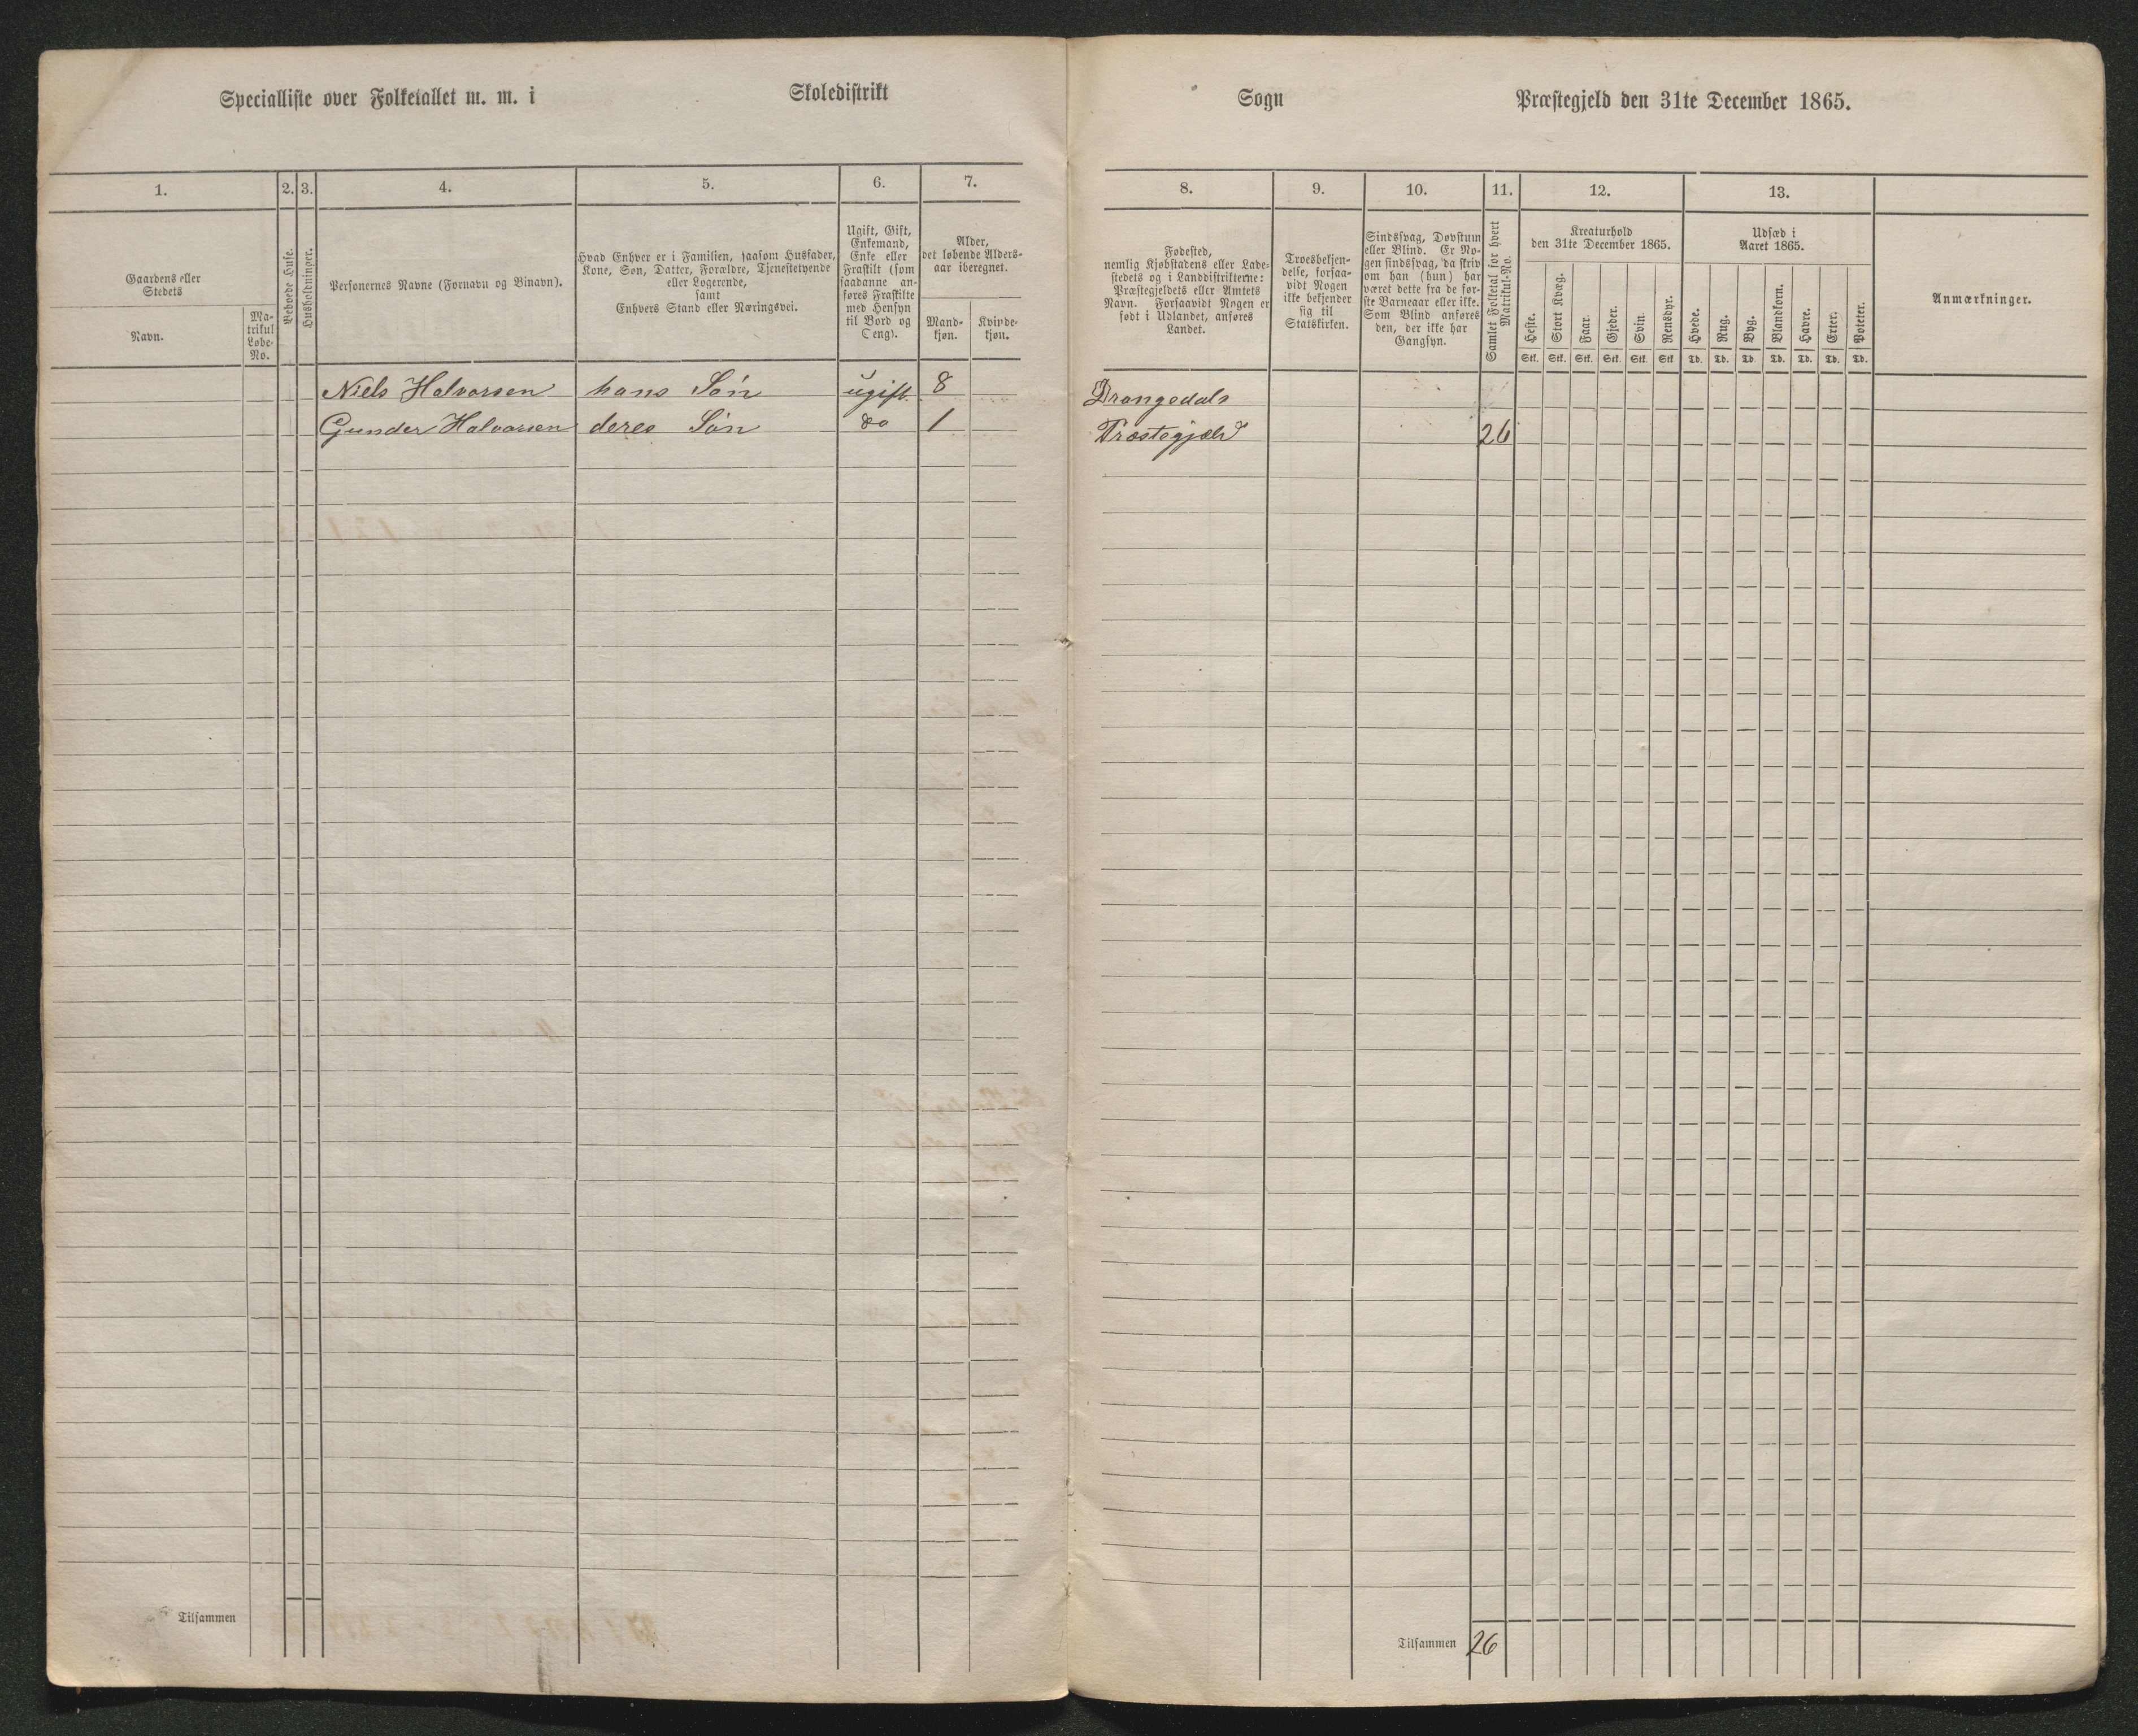 Specialliste over Folketallet m. m. i Skoledistrikt Sogn Præstegjeld den 31te December 1865.
1. 2. 3. 4. 5. 6. 7. 8. 9. 10. 11. 12. 13.
Gaardens eller
Stedets
Navn.
Ma-
trikul
Løbe-
No.
Beboede Huse.
Husholdninger.
Personernes Navne (Fornavn og Binavn).
Hvad Enhver er i Familien, saasom Husfader,
Kone, Søn, Datter, Forældre, Tjenestetyende
eller Logerende,
samt
Enhvers Stand eller Næringsvei.
Ugift, Gift,
Enkemand,
Enke eller
Fraskilt (som
saadanne an-
føres Fraskilte
med Hensyn
til Bord og
Seng).
Alder,
det løbende Alders-
aar iberegnet.
Mand-
kjøn.
Kvinde-
kjøn.
Fødested,
nemlig Kjøbstadens eller Lade-
stedets og i Landdistrikterne:
Præstegjeldets eller Amtets
Navn. Forsaavidt Nogen er
født i Udlandet, anføres
Landet.
Troesbekjen-
delse, forsaa-
vidt Nogen
ikke bekjender
sig til
Statskirken.
Sindssvag, Døvstum
eller Blind. Er No-
gen sindssvag, da skriv
om han (hun) har
været dette fra de før-
ste Barneaar eller ikke.
Som Blind anføres
den, der ikke har
Gangsyn.
Samlet Folketal for hvert
Matrikul-No.
Kreaturhold
den 31te December 1865.
Heste.
Stort Kvæg.
Faar.
Gjeder.
Svin.
Rensdyr.
Stk. Stk. Stk. Stk. Stk. Stk
Udsæd i
Aaret 1865.
Hvede.
Rug.
Byg.
Blandkorn.
Havre.
Erter.
Poteter.
Td. Td. Td. Td. Td. Td. Td.
Anmærkninger.
Niels Halvorsen hans Søn ugift. 8 Drangedals
Gunder Halvorsen deres Søn do 1 Præstegjeld 26
Tilsammen
Tilsammen 26